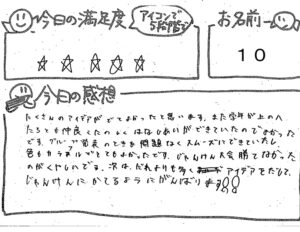 今日の満足度
アイコンで5段階で
お名前
☆ ☆ ☆ ☆ ☆
10
今日の感想
たくさんのアイデアがでてよかったと思います。また学年が上の人
たちとも仲良くたのしくはなしあいができていたのでよかった
です。グループ発表のときも問題なくスムーズにできていたし
色もカラフルでとてもよかったです。じゃんけん大会勝てなかった
のがくやしいです。次は、だれよりも多くアイデアをだして、
じゃんけんにかてるようにがんばります!!